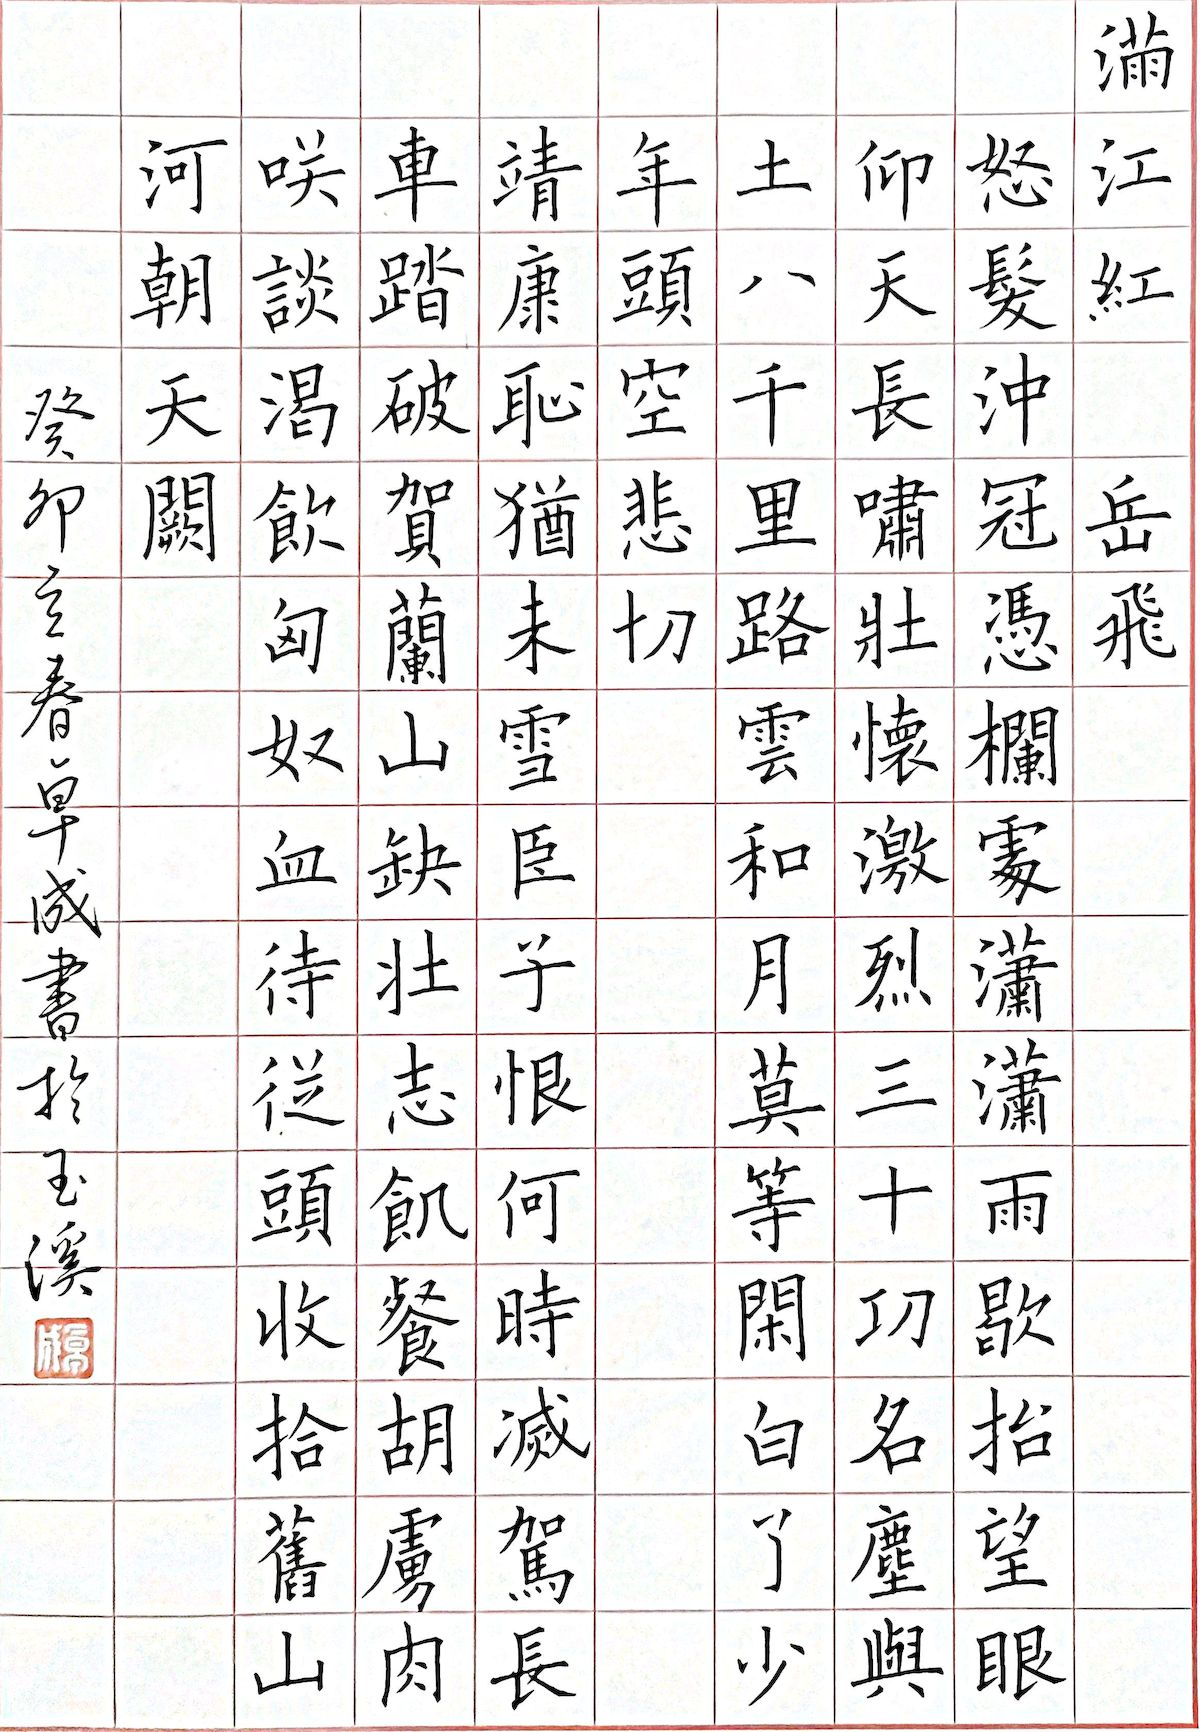 滿江紅 岳飛
怒髮沖冠憑欄處瀟瀟雨歇抬望眼
仰天長嘯壯懷激烈三十功名塵與
土八千里路雲和月莫等閑白了少
年頭空悲切
靖康恥猶未雪臣子恨何時滅駕長
車踏破賀蘭山缺壯志飢餐胡虜肉
咲談渴飲匈奴血待從頭收拾舊山
河朝天闕
癸卯立春草成書於玉溪